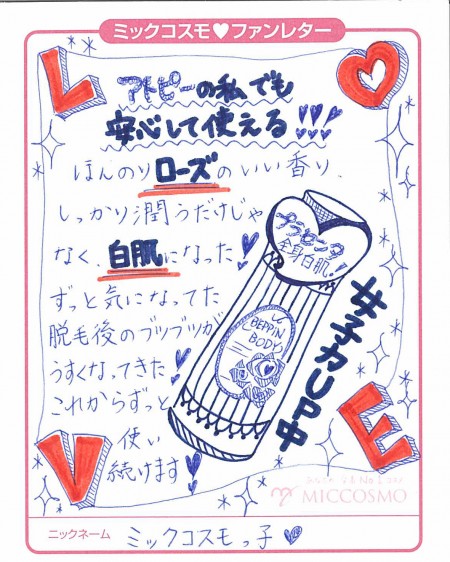 ミックコスモ♥ファンレター
L O
アトピーの私でも
安心して使える!!!
ほんのりローズのいい香り、
しっかり潤うだけじゃ
なく、白肌になった!
ずっと気になってた
脱毛後のブツブツが
うすくなってきた!
これからずっと
使い
続けます!
プラセンタ
全身白肌!
BEPPIN
BODY
女子力UP中
V E
MICCOSMO
ニックネーム ミックコスモっ子♥